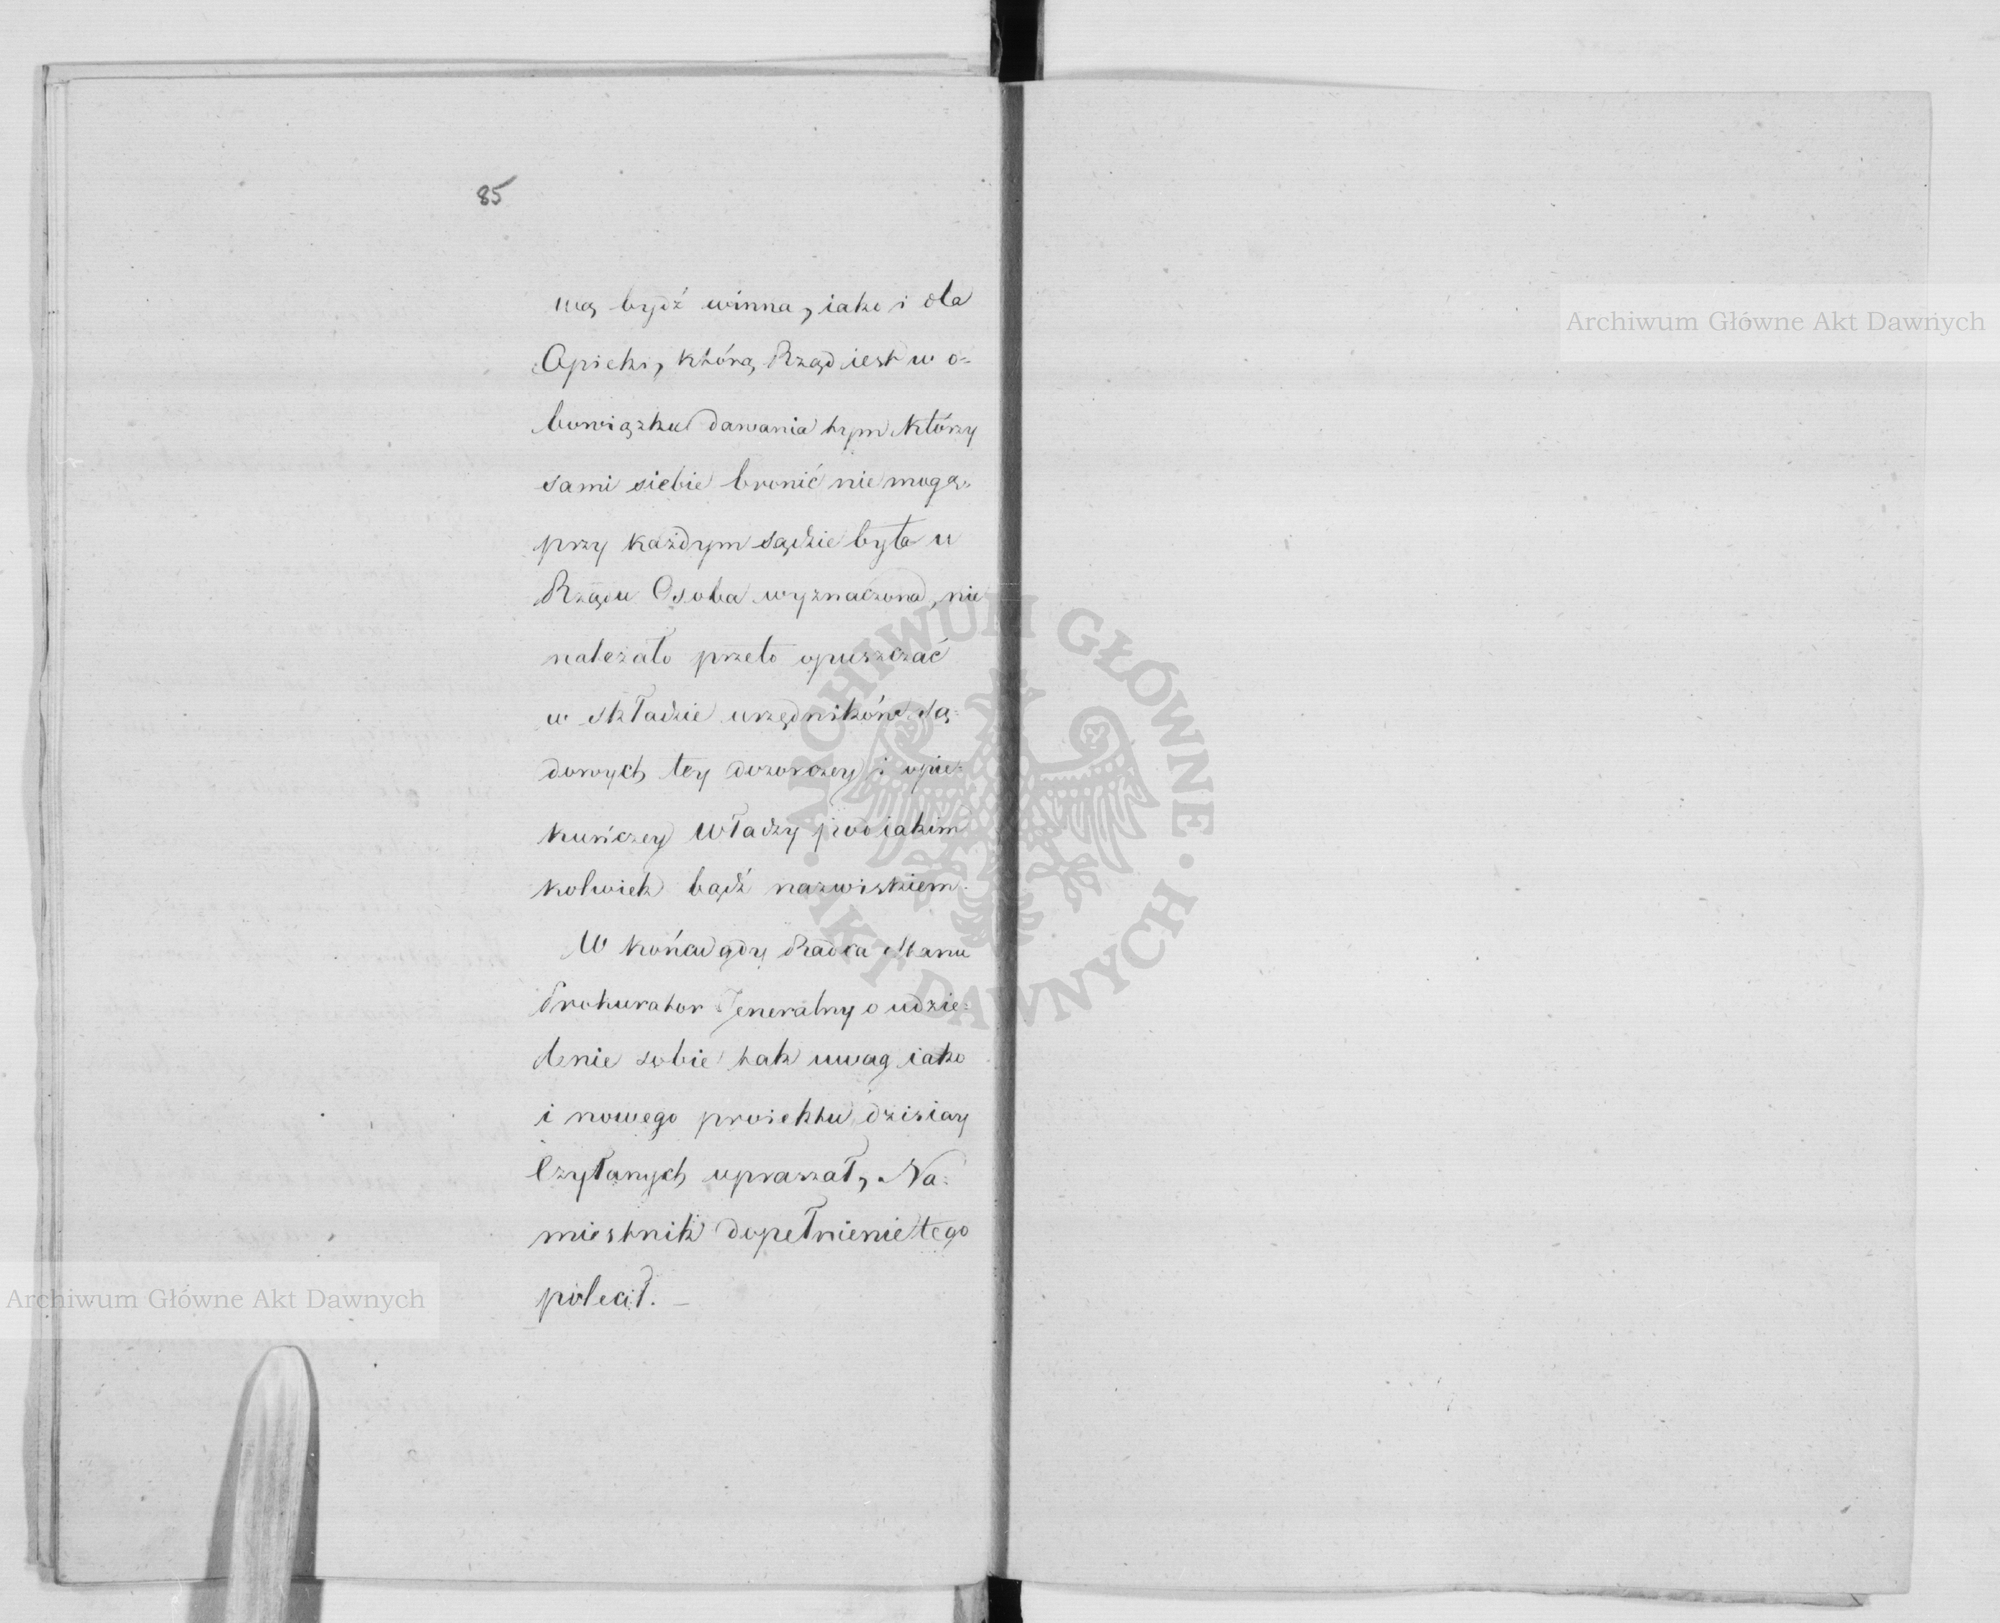 85
ną bydź winna, iako i dla
Opieki, którą Rząd iest w o-
bowiązku dawania tym którzy
sami siebie bronić nie mogą,
przy każdym sądzie była u
Rządu Osoba wyznaczona, nie
należało przeto opuszczać
w składzie urzędników są-
dowych tey dozorczey i opie-
kuńczey Władzy pod iakim
kolwiek bądź nazwiskiem.
W końcu gdy Radca Stanu
Prokurator Jeneralny o udzie-
lenie sobie tak uwag iako
i nowego proiektu dzisiay
Czytanych upraszał, Na-
miestnik dopełnienie tego
polecił. —
Archiwum Główne Akt Dawnych
Archiwum Główne Akt Dawnych
ARCHIWUM GŁÓWNE · AKT DAWNYCH ·